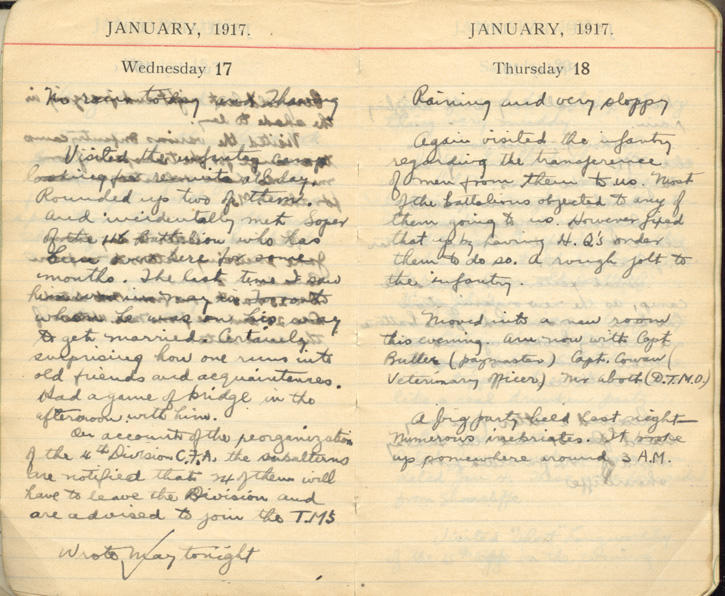 JANUARY, 1917.
Wednesday 17
No rain today and Thawing
Visited the infantry camp
looking for recruits all day.
Rounded up two of them.
And incidentally met Soper
of the 4th Battalion who has
been down here for some
months. The last time I saw
him was in
whom he was on his way
to get married. Certainly
surprising how one runs into
old friends and acquaintences.
Had a game of bridge in the
afternoon with him.
On account of the reorganization
of the 4th Division C.F.A. the subalterns
are notified that 24 of them will
have to leave the Division and
are advised to join the T.M's
Wrote May tonight
JANUARY, 1917.
Thursday 18
Raining and very sloppy
Again visited the infantry
regarding the transference
of men from them to us. Most
of the battalions objected to any of
them going to us. However fixed
that up by having H.Q's order
them to do so. A rough jolt to
the infantry.
Moved into a new room
this evening. Am now with Capt
Butler (paymaster) Capt. Cowan (
Veterinary Officer) Mr Abott (D.T.M.O.)
A big party held last night
numerous inebriates. It woke
up somewhere around 3 A.M.